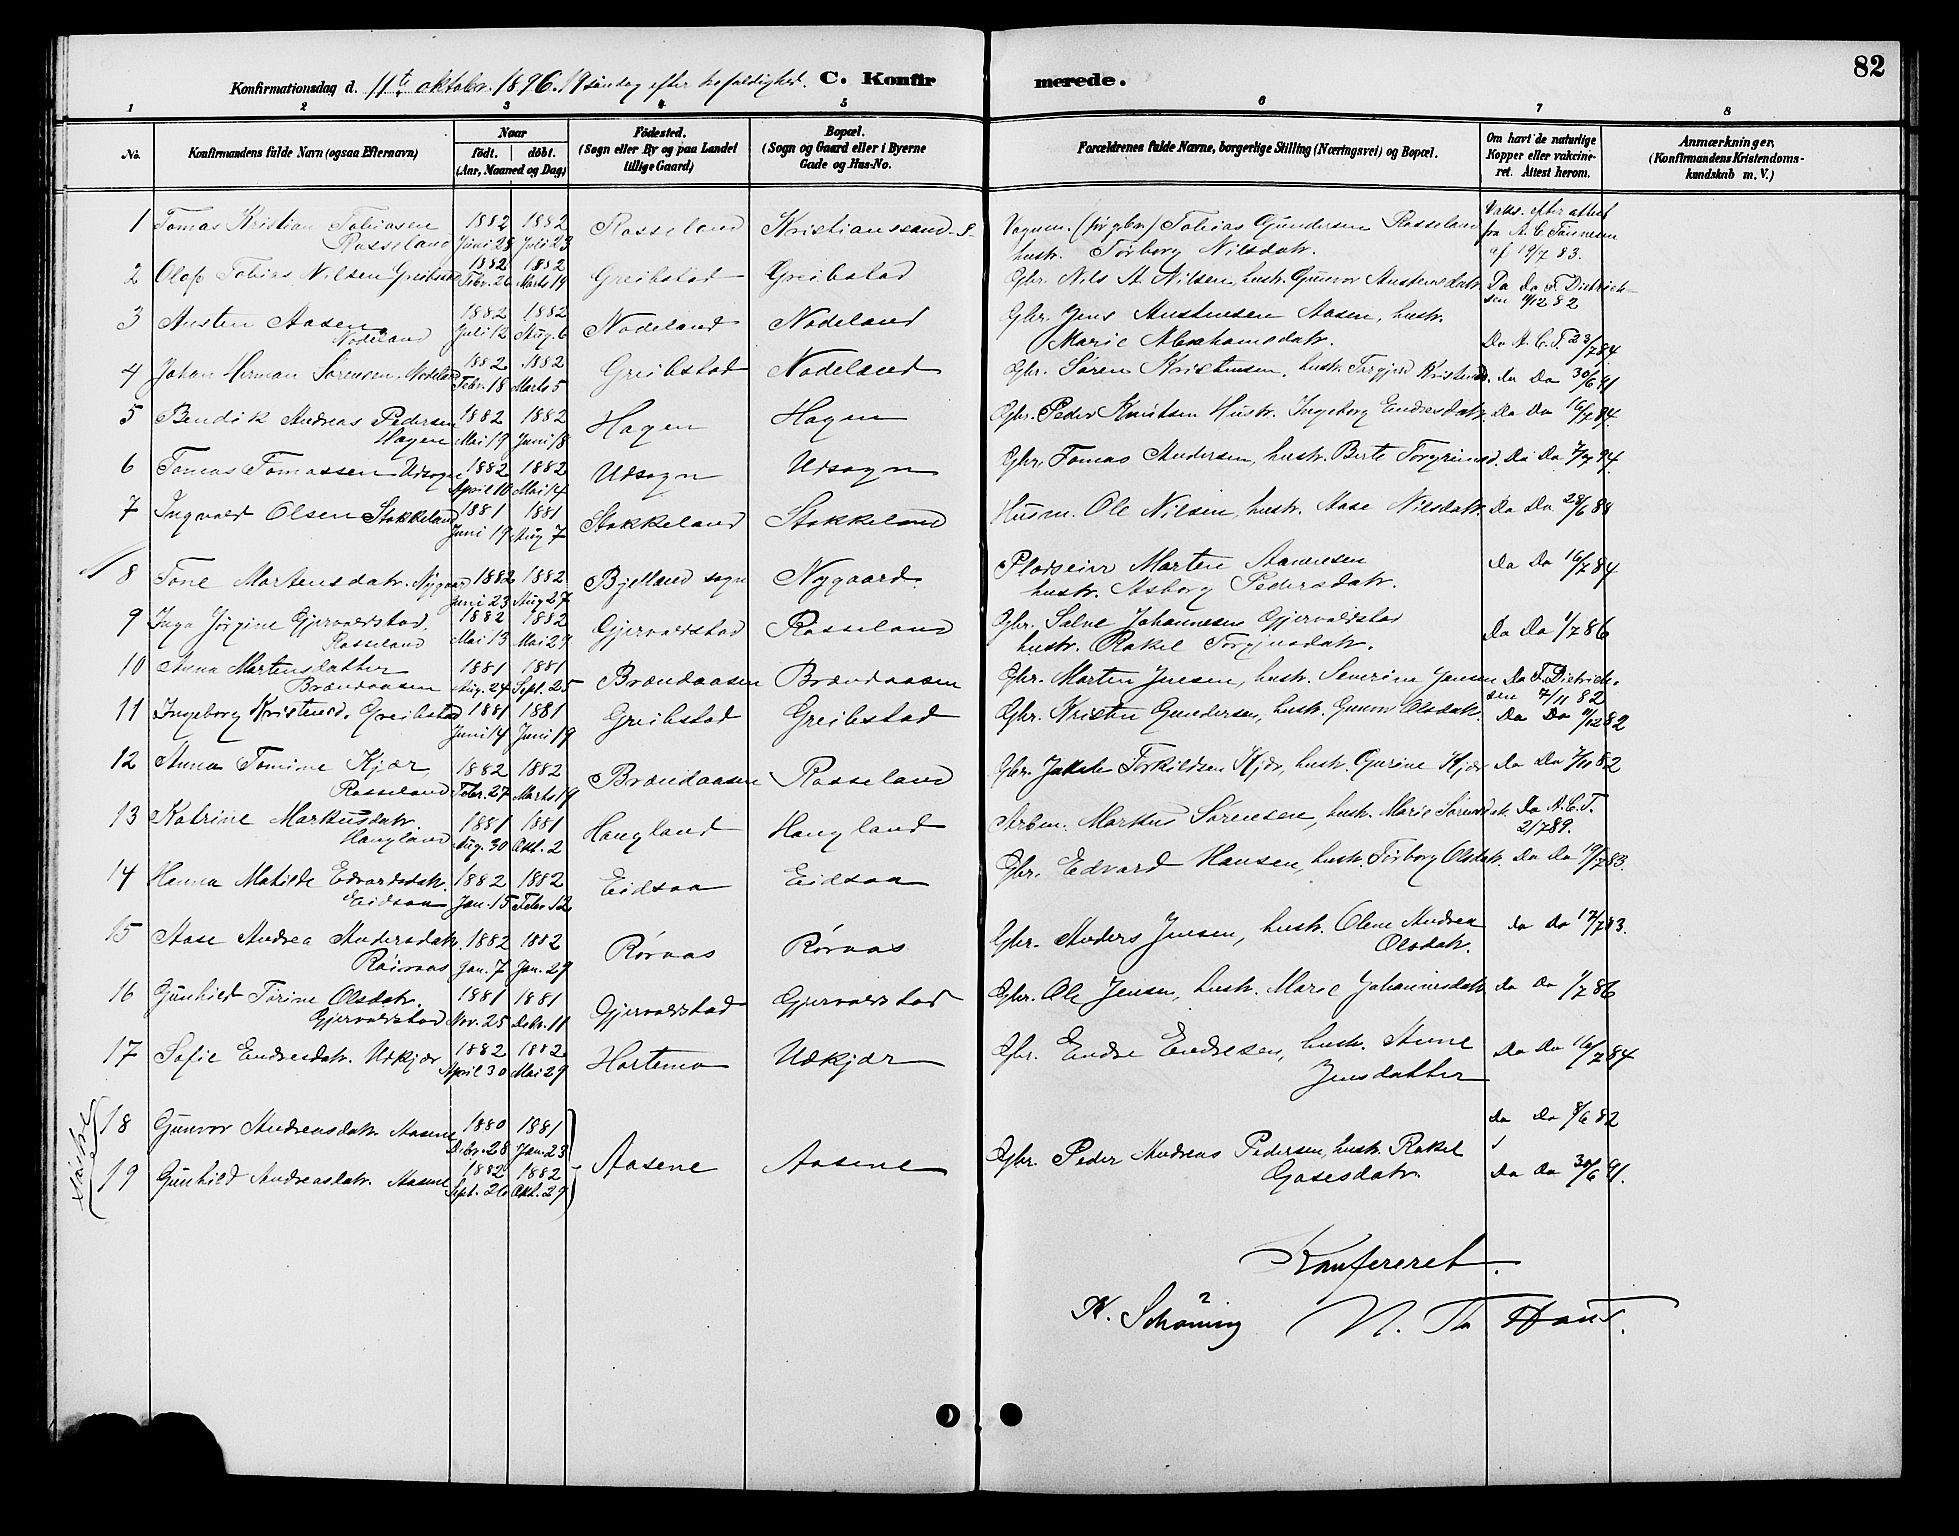 82
Konfirmationsdag d. 11te oktober 1896. 19 søndag efter trefoldighed. C. Konfirmerede.
1 2 3 4 5 6 7 8
No. Konfirmandens fulde Navn (ogsaa Efternavn) Naar født. døbt. (Aar, Maaned og Dag) Födested. (Sogn eller By og paa Landet tillige Gaard) Bopæl. (Sogn og Gaard eller i Byerne Gade og Hus-No. Forældrenes fulde Navne, borgerlige Stilling (Næringsvei) og Bopæl. Om havt de naturlige Kopper eller vakcineret. Attest herom. Anmærkninger, (Konfirmandens Kristendomskundskab m. V.)
1 Tomas Kristian Tobiasen Rosseland 1882 Juni 25 1882 Juli 23 Rosseland Kristianssand S. (før gbr.) Tobias Gundersen Rosseland hustr. Torborg Nilsdatr. Vaks. efter attest fra A. C. Tønnesen af 19/7 83.
2 Olaf Tobias Nilsen Greibstad 1882 Febr. 26 1882 Marts 19 Greibstad Greibstad Gbr. Nils A. Nilsen, hustr. Gunvor Austensdatr. Do Do F. Dietrichsen 11/12 82
3 Austen Aasen Nodeland 1882 Juli 12 1882 Aug. 6 Nodeland Nodeland Gbr. Jens Austensen Aasen, hustr. Marie Abrahamsdatr. Do A. C. T. 23/7 84
4 Johan Herman Sørensen Nodeland 1882 Febr. 18 1882 Marts 5 Greibstad Nodeland Gbr. Søren Kristensen, hustr. Torgjerd Kristensd. Do Do 30/6 91
5 Bendik Andreas Pedersen Hagen 1882 Mai 19 1882 Juni 18 Hagen Hagen Gbr. Peder Knutsen Hustr. Ingeborg Endresdatr. Do Do 16/7 84.
6 Tomas Tomassen Udsogn 1882 April 10 1882 Mai 14 Udsogn Udsogn Gbr. Tomas Andersen, hustr. Berte Torgrimsd. Do Do
7 Ingvald Olsen Stokkeland 1881 Juni 19 1881 Aug 7 Stokkeland Stokkeland Husm. Ole Nilsen, hustr. Aase Nilsdatr. Do Do 28/6
8 Tone Martensdatr. Nygaard 1882 Juni 23 1882 Aug 27 Bjelland sogn Nygaard. Pladseier Marten Aanensen hustr. Asborg Pedersdatr. Do Do 16/7 84
9 Inga Jørgine Gjervaldstad. Rosseland 1882 Mai 13 1882 Mai 29 Gjervaldstad Rosseland Gbr. Salve Johannesen Gjervaldstad hustr. Rakel Torgjusdatr. Do Do 1/7 86
10 Anna Martensdatter Brændaasen 1881 Aug. 24 1881 Sept. 25 Brændaasen Brændaasen Gbr. Marten Jensen, hustr. Severine Jensen Do F. Dietrichsen 7/11 82
11 Ingeborg Kristensd. Greibstad 1881 Juni 4 1881 Juni 19 Greibstad Greibstad Gbr. Kristen Gundersen, hustr. Gunvor Olsdatr. Do Do 11/12 82
12 Anna Tomine Kjær, Rosseland 1882 Febr. 27 1882 Marts 19 Brændaasen Rosseland Gbr. Jakob Torkildsen Kjær, hustr. Gurine Kjær Do Do 7/11 82
13 Katrine Markusdatr. Haugland 1881 Aug. 30 1881 Okt. 2 Haugland Haugland Arbm. Markus Sørensen, hustr. Marie Sørensdatr. Do A. C. T. 2/7 89.
14 Hanna Matilde Edvardsdatr. Eidsaa 1882 Jan. 15 1882 Febr. 12 Eidsaa Eidsaa Gbr. Edvard Hansen, hustr. Torborg Olsdatr. Do Do 19/7 83.
15 Aase Andrea Andersdatr. Røiraas 1882 Jan. 7 1882 Jan. 29 Røraas Røraas Gbr. Anders Jensen, hustr. Olene Andrea Olsdatr. Do Do 17/7 83.
16 Gunhild Torine Olsdatr. Gjervaldstad 1881 Nov. 25 1881 Debr. 11 Gjervaldstad Gjervaldstad Gbr. Ole Jensen, hustr. Marie Johannesdatr. Do Do 1/7 86
17 Sofie Endresdatr. Udkjær 1882 April 30 1882 Mai 29 Hortemo Udkjær Gbr. Endre Endresen, hustr. Anne Jensdatter Do Do 16/7 84
18 Gunvor Andreasdatr. Aasene 1880 Debr. 28 1881 Jan. 23 Aasene Aasene Gbr. Peder Andreas Pedersen, hustr. Rakel Gasesdatr. Do Do 8/6 82
19 Gunhild Andreasdatr. Aasene 1882 Sept. 26 1882 Okt. 29 Do Do 30/6 91.
Konfereret.
N. Schöning N. Th